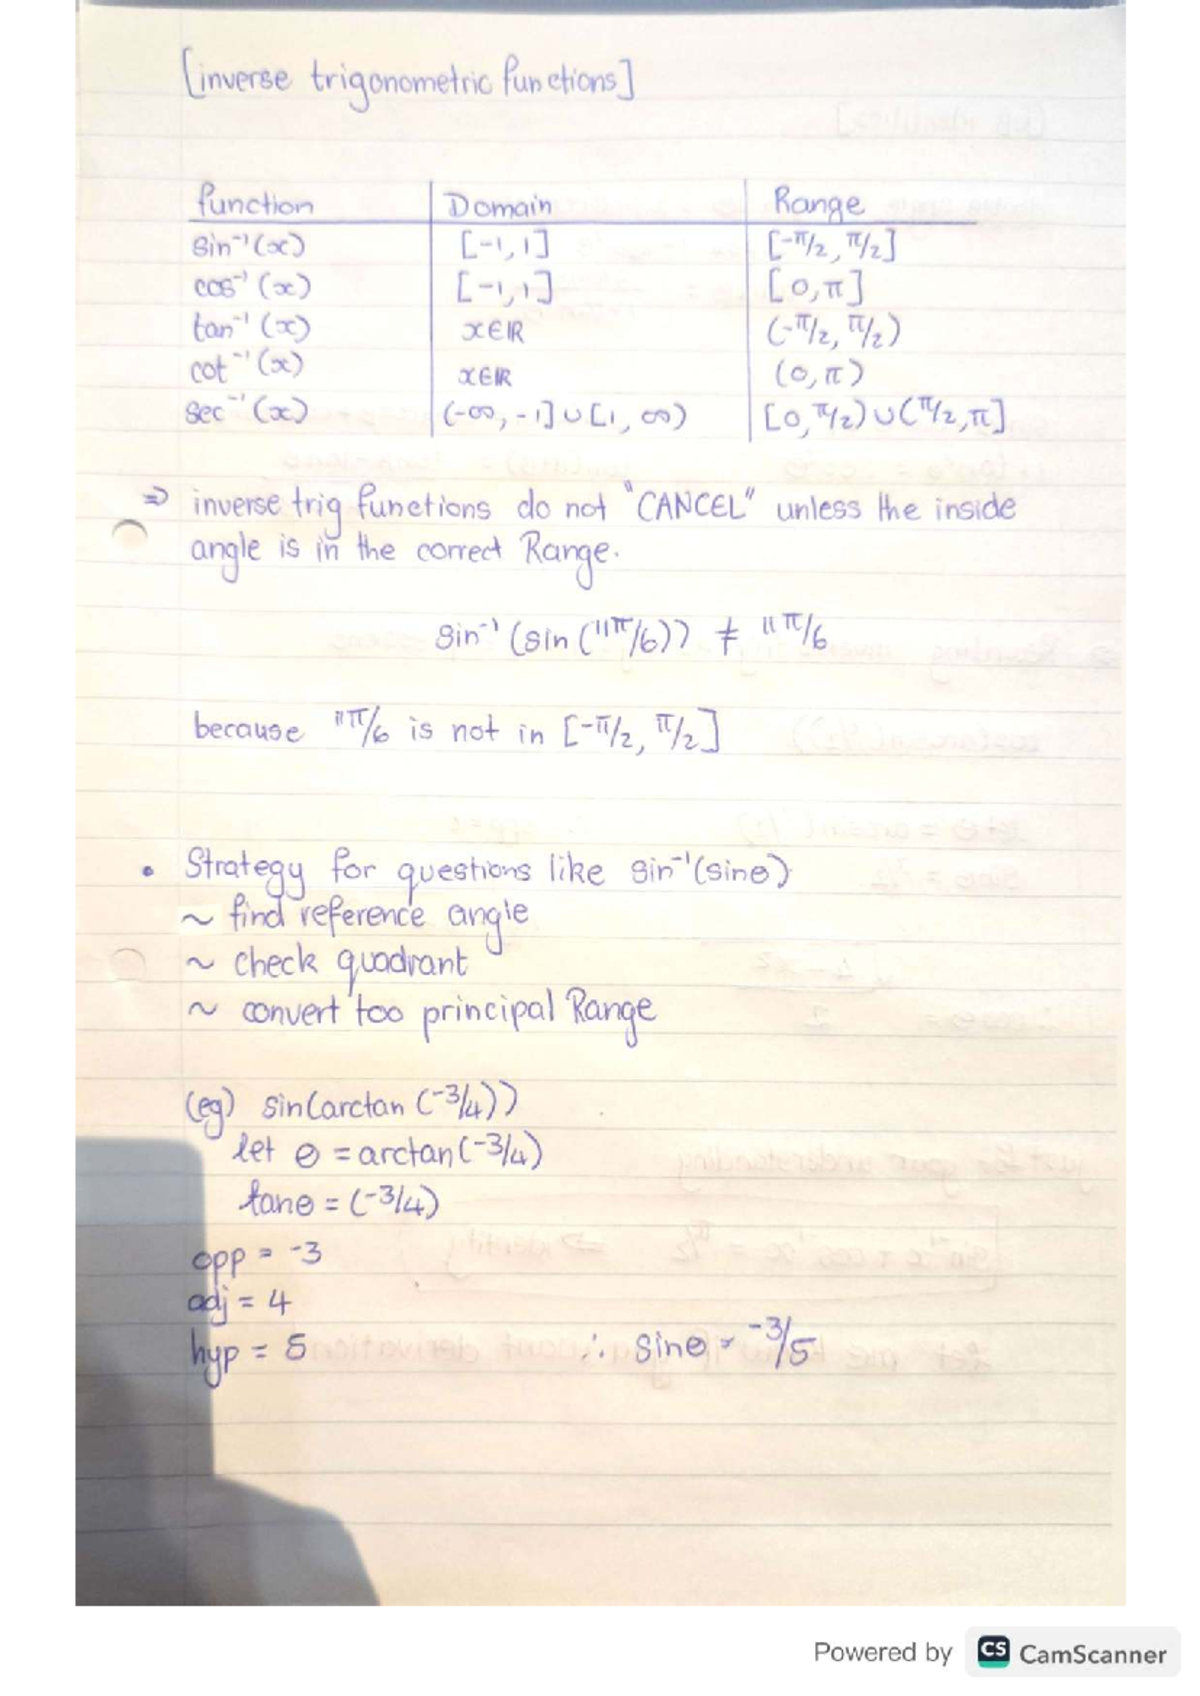 [inverse trigonometric functions]
function Domain Range
sin⁻¹(x) [-1,1] [-π/2, π/2]
cos⁻¹(x) [-1,1] [0,π]
tan⁻¹(x) x∈ℝ (-π/2, π/2)
cot⁻¹(x) x∈ℝ (0,π)
sec⁻¹(x) (-∞,-1]∪[1,∞) [0,π/2)∪(π/2,π]
⇒ inverse trig functions do not "CANCEL" unless the inside
angle is in the correct Range.
sin⁻¹(sin(11π/6)) ≠ 11π/6
because 11π/6 is not in [-π/2, π/2]
• Strategy for questions like sin⁻¹(sinθ)
~ find reference angle
~ check quadrant
~ convert too principal Range
(eg) sin(arctan(-3/4))
let θ = arctan(-3/4)
tanθ = (-3/4)
opp = -3
adj = 4
hyp = 5 ∴ sinθ = -3/5
Powered by CS CamScanner